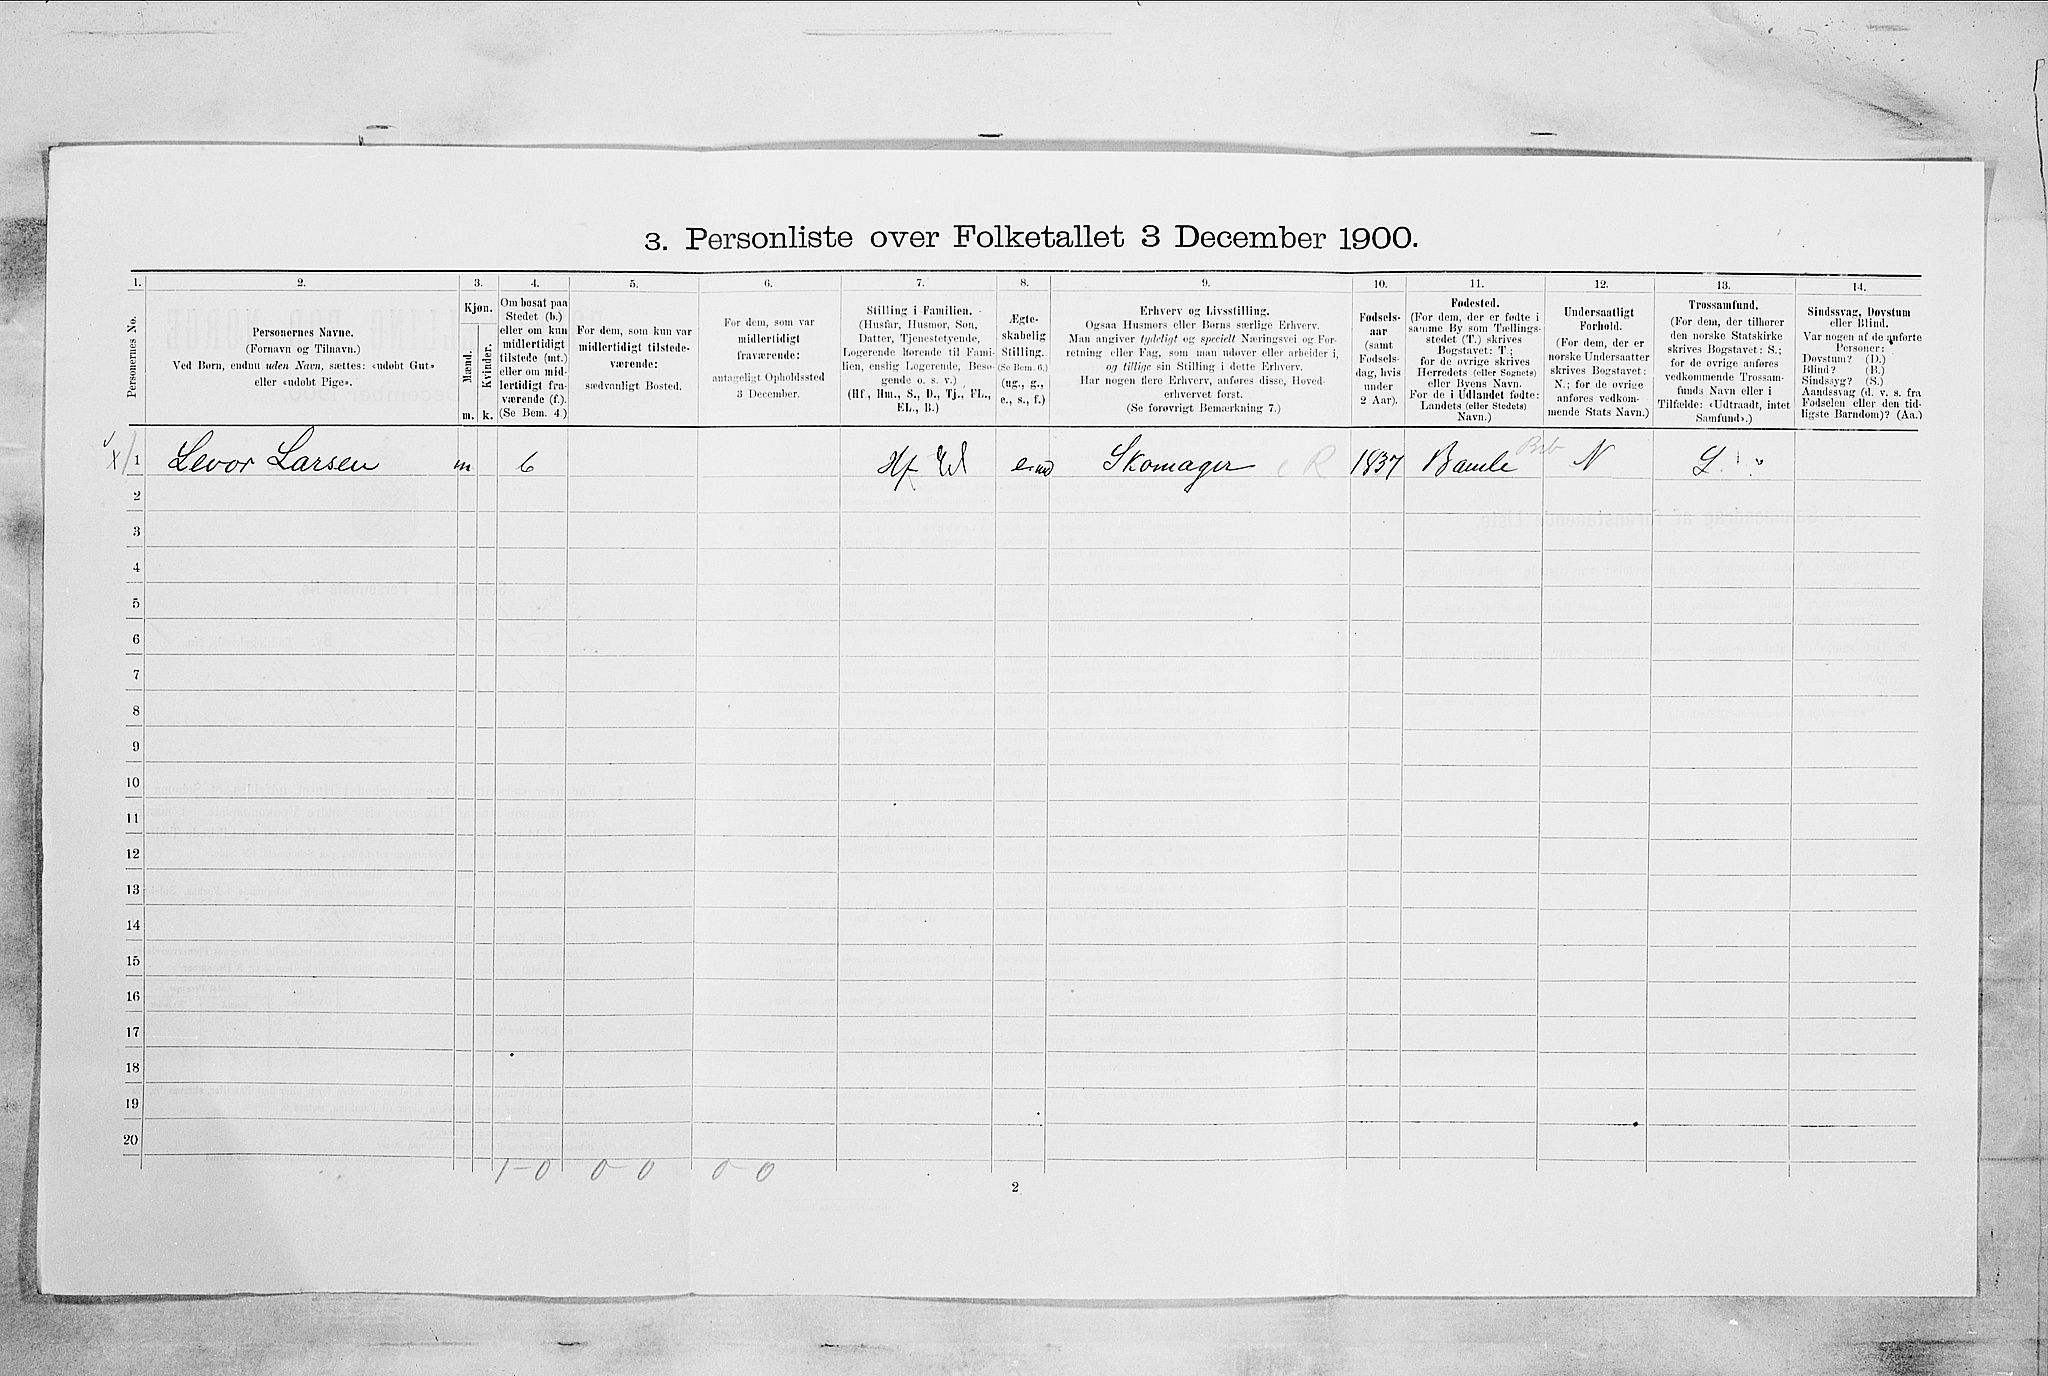 3. Personliste over Folketallet 3 December 1900.
1. 2. 3. 4. 5. 6. 7. 8. 9. 10. 11. 12. 13. 14.
Personernes No.
Personernes Navne.
(Fornavn og Tilnavn.)
Ved Børn, endnu uden Navn, sættes: «udøbt Gut»
eller «udøbt Pige».
Kjøn.
Mænd.
Kvinder.
m. k.
Om bosat paa
Stedet (b.)
eller om kun
midlertidigt
tilstede (mt.)
eller om mid-
lertidigt fra-
værende (f.).
(Se Bem. 4.)
For dem, som kun var
midlertidigt tilstede-
værende:
sædvanligt Bosted.
For dem, som var
midlertidigt
fraværende:
antageligt Opholdssted
3 December.
Stilling i Familien.
(Husfar, Husmor, Søn,
Datter, Tjenestetyende,
Logerende hørende til Fami-
lien, enslig Logerende, Besø-
gende o. s. v.)
(Hf., Hm., S., D., Tj., FL.,
EL., B.)
Ægte-
skabelig
Stilling.
(Se Bem. 6.)
(ug., g.,
e., s., f.)
Erhverv og Livsstilling.
Ogsaa Husmors eller Børns særlige Erhverv.
Man angiver tydeligt og specielt Næringsvei og For-
retning eller Fag, som man udøver eller arbeider i,
og tillige sin Stilling i dette Erhverv.
Har nogen flere Erhverv, anføres disse, Hoved-
erhvervet først.
(Se forøvrigt Bemærkning 7.)
Fødsels-
aar
(samt
Fødsels-
dag, hvis
under
2 Aar).
Fødested.
(For dem, der er fødte i
samme By som Tællings-
stedet (T.) skrives
Bogstavet: T.;
for de øvrige skrives
Herredets (eller Sognets)
eller Byens Navn.
For de i Udlandet fødte:
Landets (eller Stedets)
Navn.)
Undersaatligt
Forhold.
(For dem, der er
norske Undersaatter
skrives Bogstavet:
N.; for de øvrige
anføres vedkom-
mende Stats Navn.)
Trossamfund.
(For dem, der tilhører
den norske Statskirke
skrives Bogstavet: S.;
for de øvrige anføres
vedkommende Trossam-
funds Navn eller i
Tilfælde: «Udtraadt, intet
Samfund».)
Sindssvag, Døvstum
eller Blind.
Var nogen af de anførte
Personer:
Døvstum? (D.)
Blind? (B.)
Sindssyg? (S.)
Aandssvag (d. v. s. fra
Fødselen eller den tid-
ligste Barndom)? (Aa.)
1 Levor Larsen m b Hf El e Skomager R 1837 Bamle Brb N S
2
3
4
5
6
7
8
9
10
11
12
13
14
15
16
17
18
19
20
1-0 0-0 0-0
2